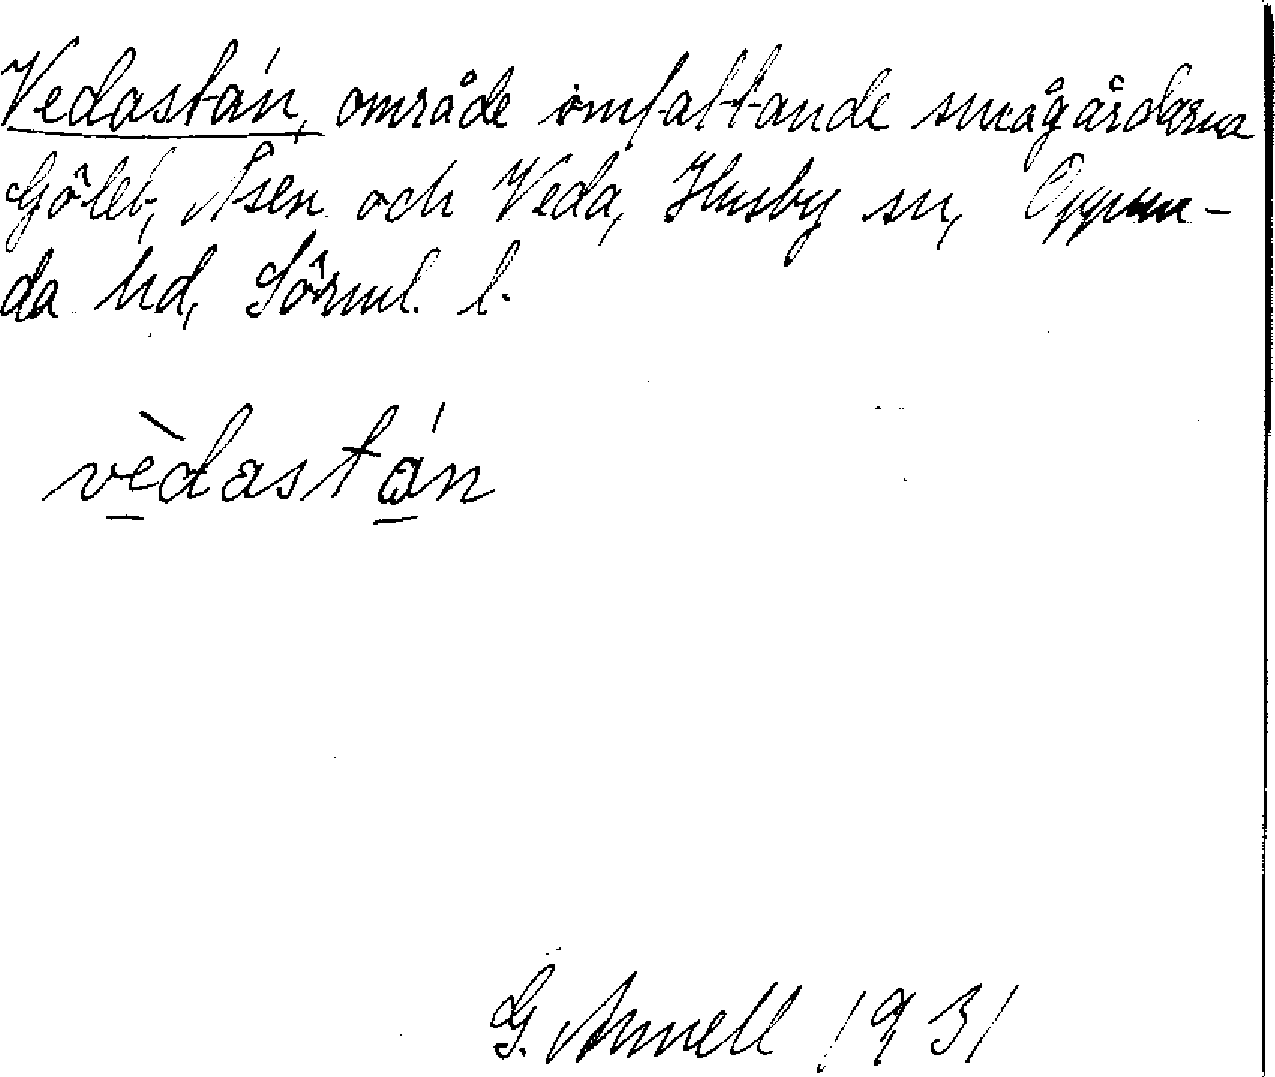 Vedastån, område omfattande smågårdarna
Gölet, Åsen och Veda, Husby sn, Oppun-
da hd, Sörml. l.
vèdastán
G. Annell 1931